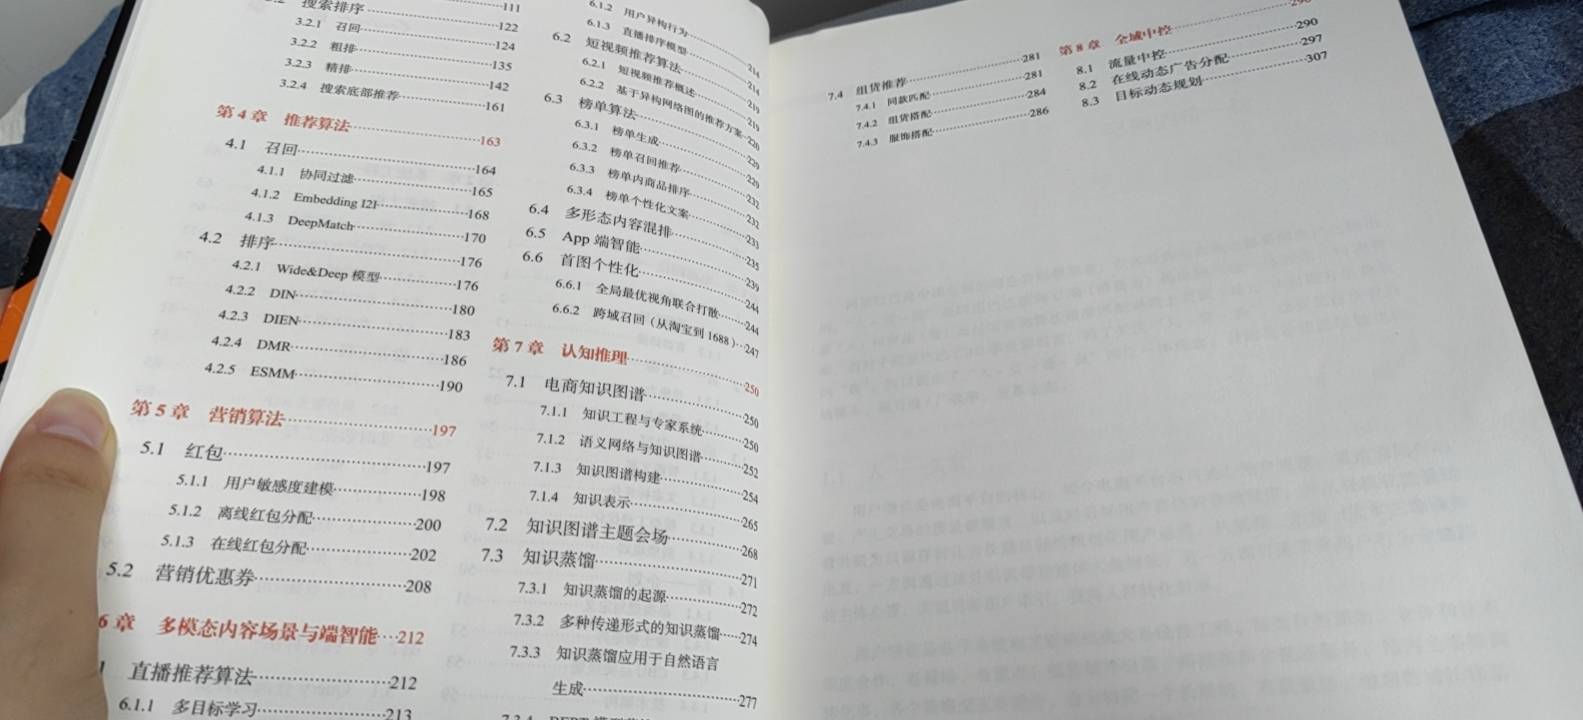 111
搜索排序 122
3.2.1 召回 124
3.2.2 粗排 135
3.2.3 精排 142
3.2.4 搜索底部推荐 161
第 4 章 推荐算法 163
4.1 召回 164
4.1.1 协同过滤 165
4.1.2 Embedding I2I 168
4.1.3 DeepMatch 170
4.2 排序 176
4.2.1 Wide&Deep 模型 176
4.2.2 DIN 180
4.2.3 DIEN 183
4.2.4 DMR 186
4.2.5 ESMM 190
第 5 章 营销算法 197
5.1 红包 197
5.1.1 用户敏感度建模 198
5.1.2 离线红包分配 200
5.1.3 在线红包分配 202
5.2 营销优惠券 208
6 章 多模态内容场景与端智能 212
直播推荐算法 212
6.1.1 多目标学习 213
6.1.2 用户异构行为 214
6.1.3 直播排序模型 214
6.2 短视频推荐算法 219
6.2.1 短视频推荐概述 219
6.2.2 基于异构网络图的推荐方案 220
6.3 榜单算法 229
6.3.1 榜单生成 229
6.3.2 榜单召回推荐 232
6.3.3 榜单内商品排序 232
6.3.4 榜单个性化文案 233
6.4 多形态内容混排 235
6.5 App 端智能 239
6.6 首图个性化 244
6.6.1 全局最优视角联合打散 244
6.6.2 跨域召回（从淘宝到 1688） 247
第 7 章 认知推理 250
7.1 电商知识图谱 250
7.1.1 知识工程与专家系统 250
7.1.2 语义网络与知识图谱 252
7.1.3 知识图谱构建 254
7.1.4 知识表示 265
7.2 知识图谱主题会场 268
7.3 知识蒸馏 271
7.3.1 知识蒸馏的起源 272
7.3.2 多种传递形式的知识蒸馏 274
7.3.3 知识蒸馏应用于自然语言
生成 277
7.4 组货推荐 281
7.4.1 同款匹配 281
7.4.2 组货搭配 284
7.4.3 服饰搭配 286
第 8 章 全域中控 290
8.1 流量中控 290
8.2 在线动态广告分配 297
8.3 目标动态规划 307